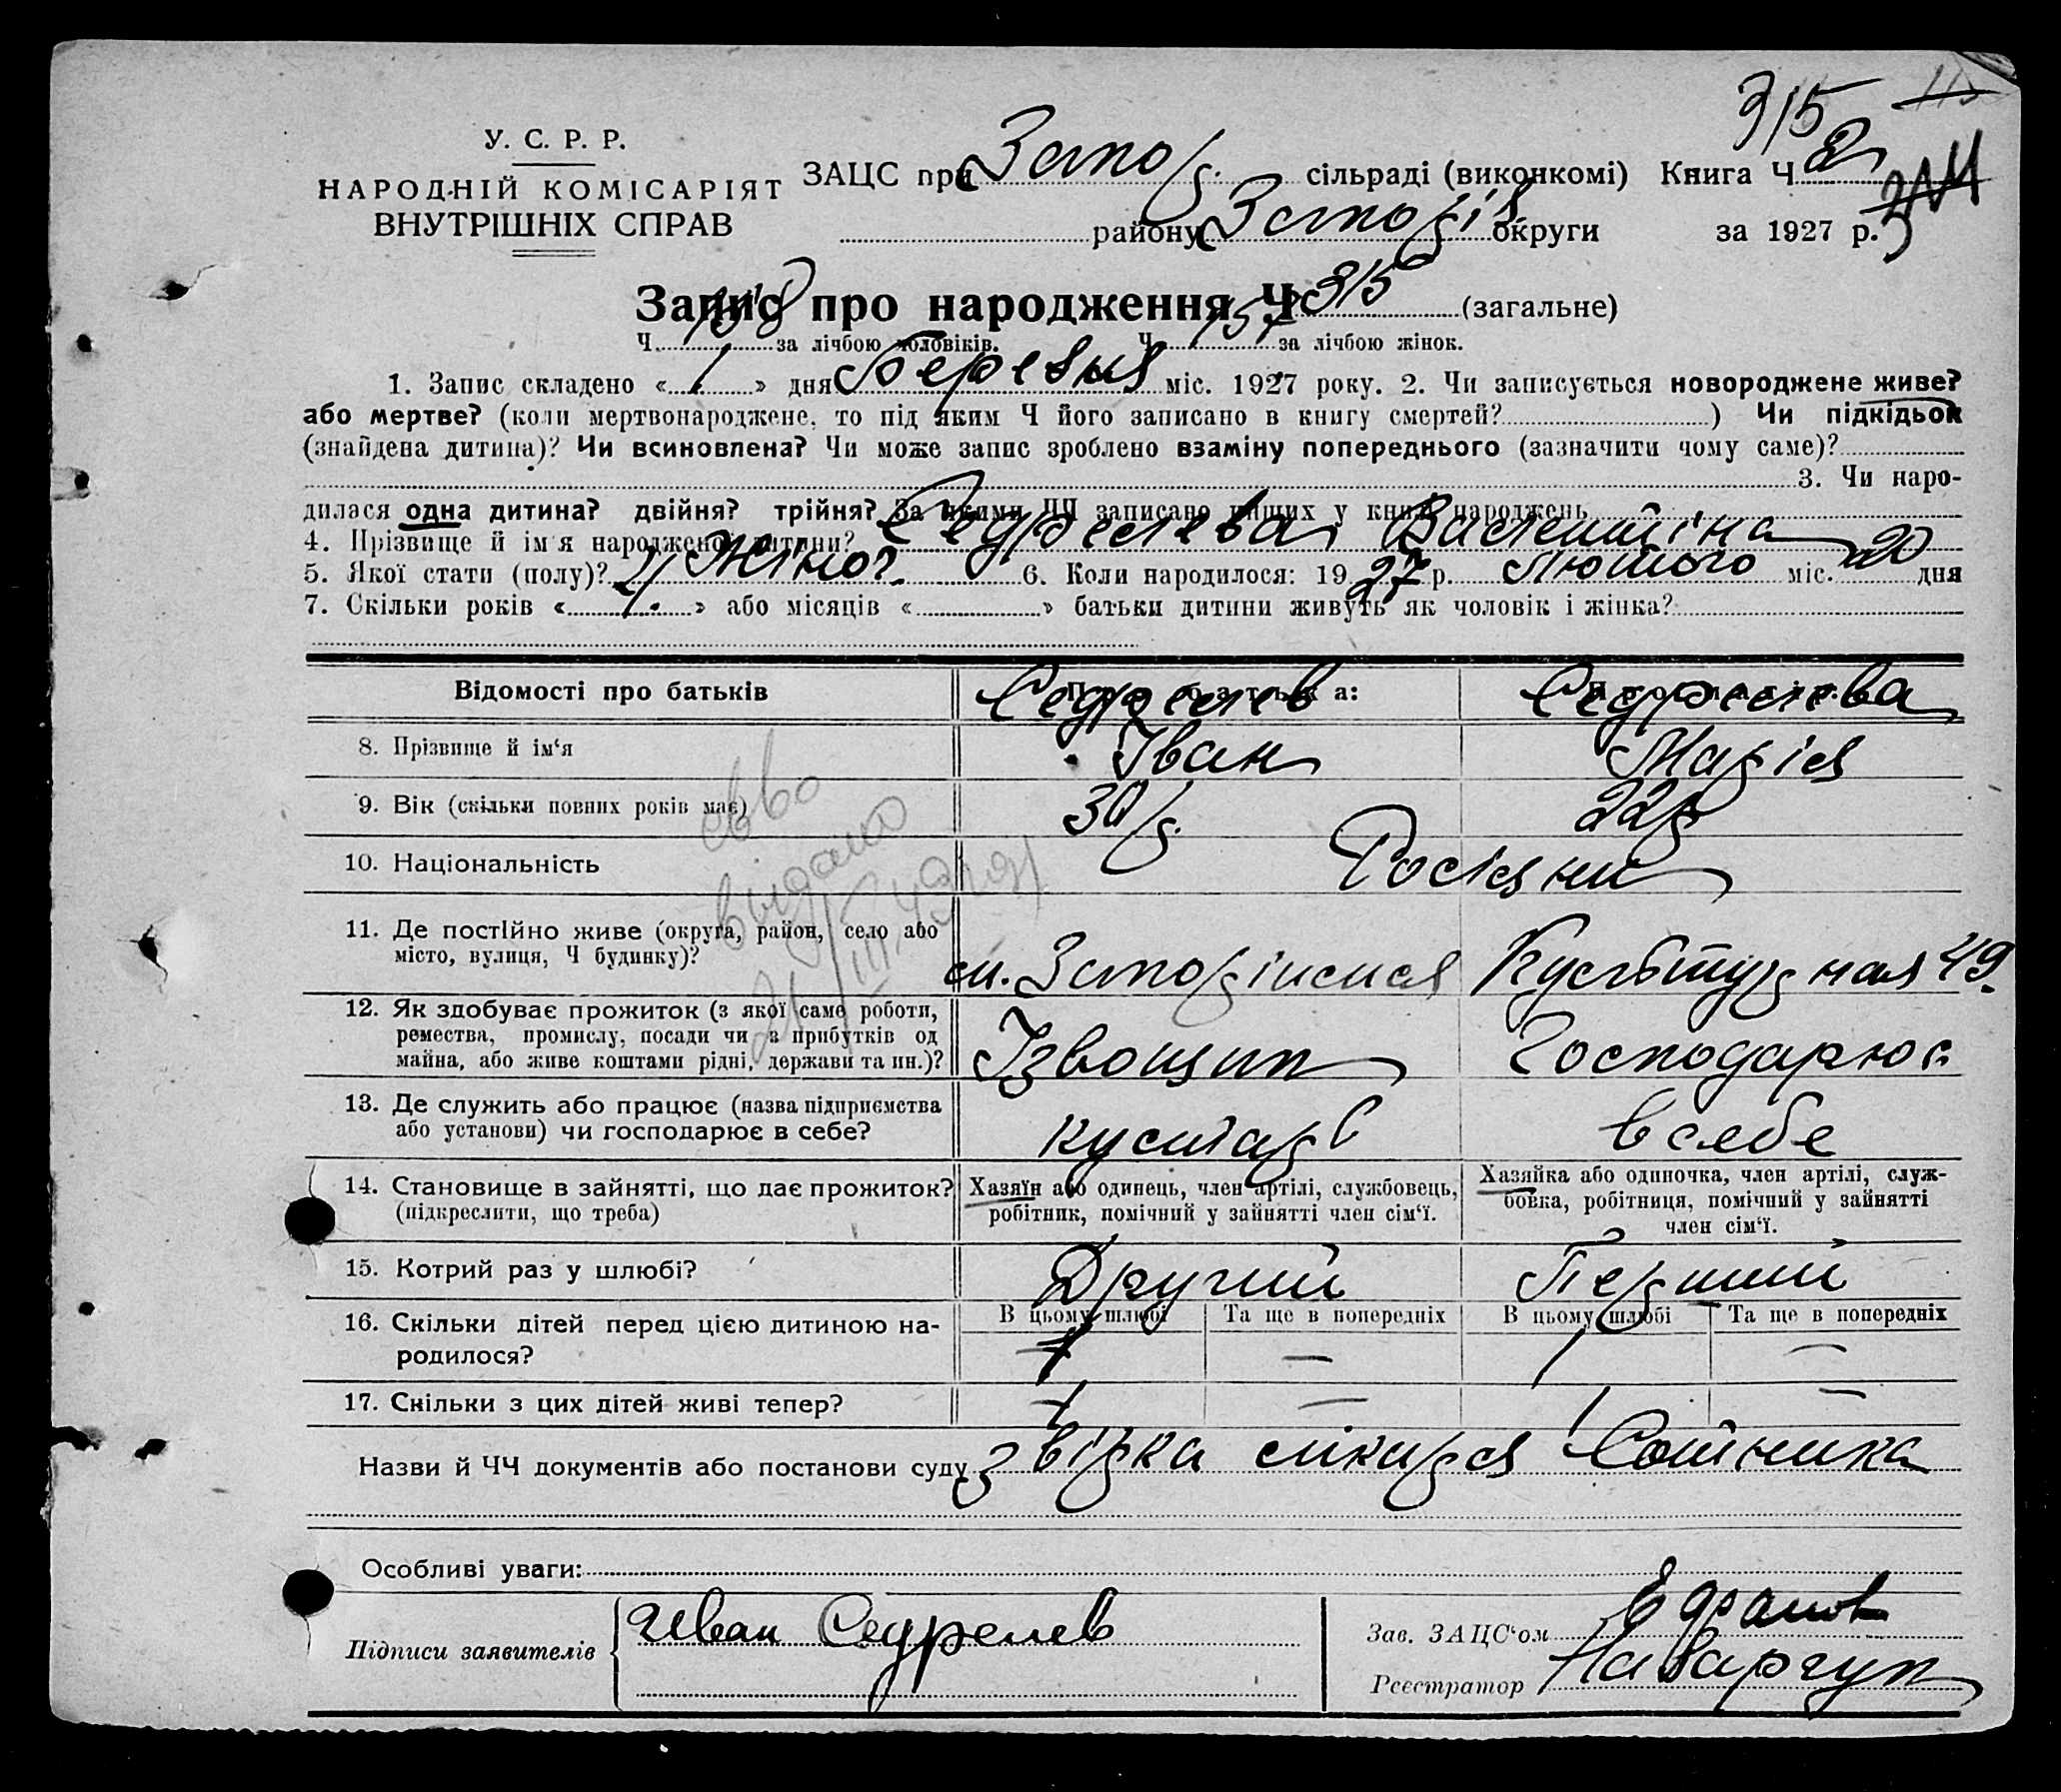 315
У. С. Р. Р.
НАРОДНІЙ КОМІСАРІЯТ
ВНУТРІШНІХ СПРАВ
ЗАЦС при Запор. сільраді (виконкомі) Книга Ч 2
району Запоріз округи за 1927 р.
Запис про народження Ч 315 (загальне)
Ч 158 за лічбою чоловіків. Ч 157 за лічбою жінок.
1. Запис складено «1» дня Березня міс. 1927 року. 2. Чи записується новороджене живе?
або мертве? (коли мертвонароджене, то під яким Ч його записано в книгу смертей? ) Чи підкідьок
(знайдена дитина)? Чи всиновлена? Чи може запис зроблено взаміну попереднього (зазначити чому саме)?
3. Чи наро-
дилася одна дитина? двійня? трійня? За якими ЧЧ записано инших у книзі народжень
4. Прізвище й ім'я народженої дитини? Валентіна
5. Якої стати (полу)? Жіноч. 6. Коли народилося: 1927 р. Лютого міс. 20 дня
7. Скільки років «4» або місяців « » батьки дитини живуть як чоловік і жінка?
Відомості про батьків Про батька:
8. Прізвище й ім'я Іван Марія
9. Вік (скільки повних років має) 30 р. 22 р
10. Національність Росіяни
11. Де постійно живе (округа, район, село або
місто, вулиця, Ч будинку)? м. Запоріжжя Культурная 49
12. Як здобуває прожиток (з якої саме роботи,
ремества, промислу, посади чи з прибутків од
майна, або живе коштами рідні, держави та ин.)? Ізвощик Господарює
13. Де служить або працює (назва підприємства
або установи) чи господарює в себе? кустарь в себе
14. Становище в зайнятті, що дає прожиток?
(підкреслити, що треба)
Хазяїн або одинець, член артілі, службовець,
робітник, помічний у зайнятті член сім'ї.
Хазяйка або одиночка, член артілі, служ-
бовка, робітниця, помічний у зайнятті
член сім'ї.
15. Котрий раз у шлюбі? Другий Перший
В цьому шлюбі Та ще в попередніх В цьому шлюбі Та ще в попередніх
16. Скільки дітей перед цією дитиною на-
родилося? 1 — 1 —
17. Скільки з цих дітей живі тепер? 1 — 1 —
Назви й ЧЧ документів або постанови суду звірка лікаря Сотника
Особливі уваги:
Підписи заявителів Иван
Зав. ЗАЦС'ом
Реєстратор
видано